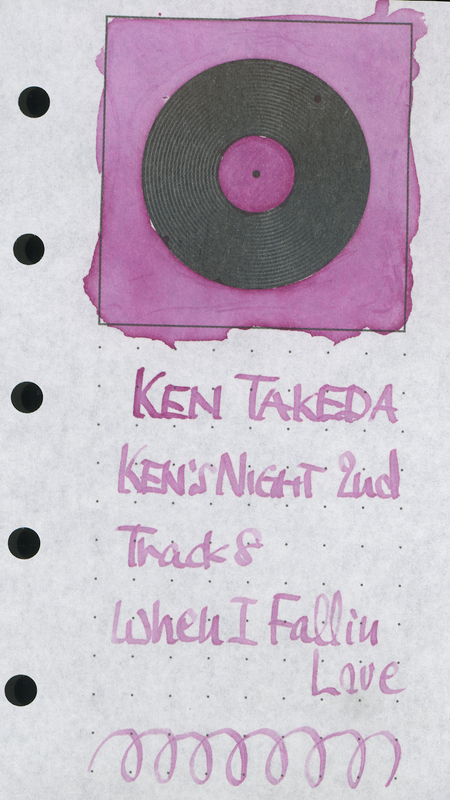 KEN TAKEDA
KEN'S NIGHT 2nd
Track 8
When I Fall in
Love